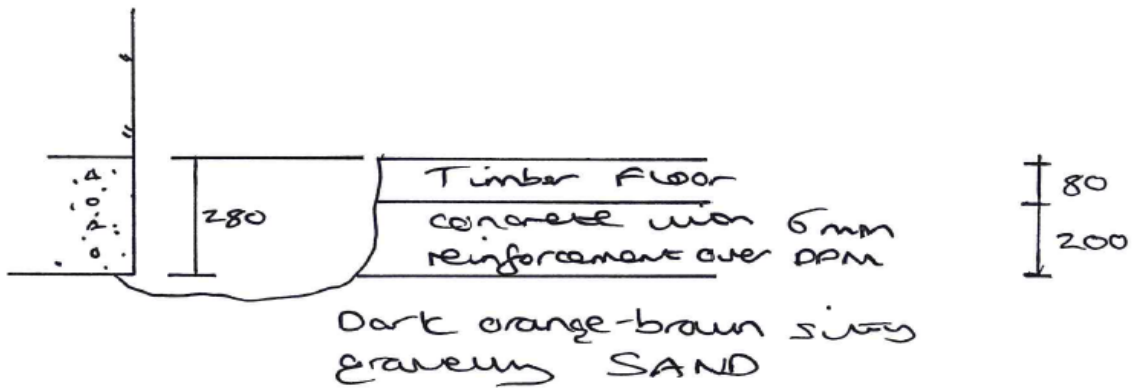 Timber Floor
80
280
concrete with 6mm
reinforcement over DPM
200
Dark orange-brown silty
gravelly SAND